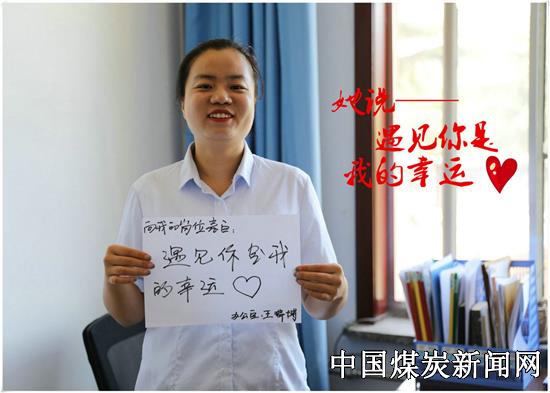 她说——
遇见你是
我的幸运
向我的岗位表白：
遇见你是我
的幸运♡
办公室：王
中国煤炭新闻网